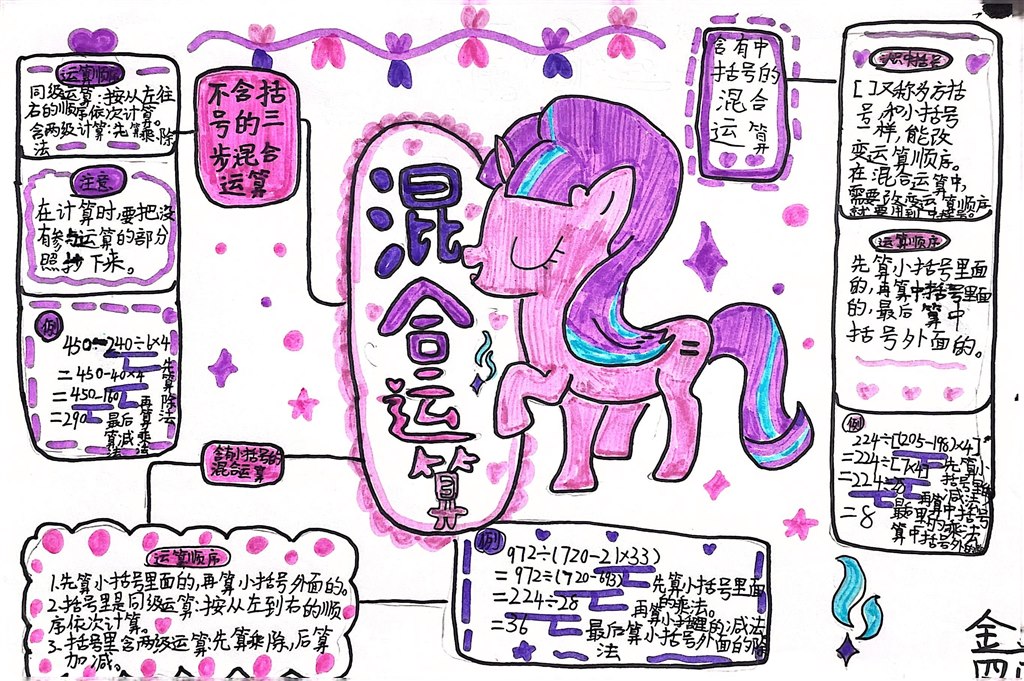 混合运算
不含括
号的三
步混合
运算
运算顺序
同级运算:按从左往
右的顺序依次计算。
含两级计算:先算乘除
法
注意
在计算时,要把没
有参与运算的部分
照抄下来。
例
450-240÷6×4
=450-40×4
=450-160
=290
先算除法
再算乘法
最后算减法
含有小括号的
混合运算
运算顺序
1.先算小括号里面的,再算小括号外面的。
2.括号里是同级运算:按从左到右的顺
序依次计算。
3.括号里含两级运算:先算乘除,后算
加减。
例
972÷(720-21×33)
=972÷(720-693)
=224÷28
=36
先算小括号里面
的乘法。
再算小括号里的减法
最后算小括号外面的除
法
含有中
括号的
混合
运算
认识中括号
[ ]又称为方括
号,和小括号
一样,能改
变运算顺序。
在混合运算中,
需要改变运算顺序
时要用到中括号。
运算顺序
先算小括号里面
的,再算中括号里面
的,最后算中
括号外面的。
例
224÷[(205-198)×4]
=224÷[7×4]
=224÷28
=8
先算小
括号里的
减法
再算中括号
里的乘法
最后
算中括号外的
金
四